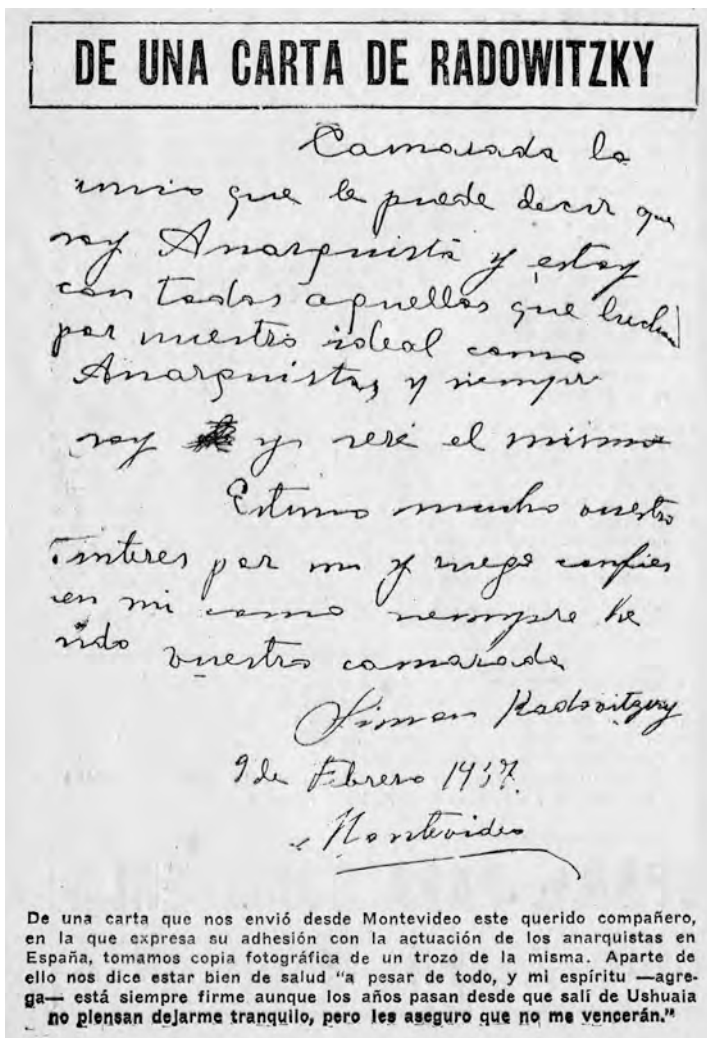 DE UNA CARTA DE RADOWITZKY
Camarada lo
unico que le puede decir que
soy Anarquista y estoy
con todos aquellos que luchan
por nuestro ideal como
Anarquistas, y siempre
soy y seré el mismo
Estimo mucho vuestro
interes por mi y ruego confies
en mi como siempre he
sido vuestro camarada
Simon Radowitzky
9 de Febrero 1937.
Montevideo
De una carta que nos envió desde Montevideo este querido compañero,
en la que expresa su adhesión con la actuación de los anarquistas en
España, tomamos copia fotográfica de un trozo de la misma. Aparte de
ello nos dice estar bien de salud "a pesar de todo, y mi espíritu —agre-
ga— está siempre firme aunque los años pasan desde que salí de Ushuaia
no piensan dejarme tranquilo, pero les aseguro que no me vencerán."